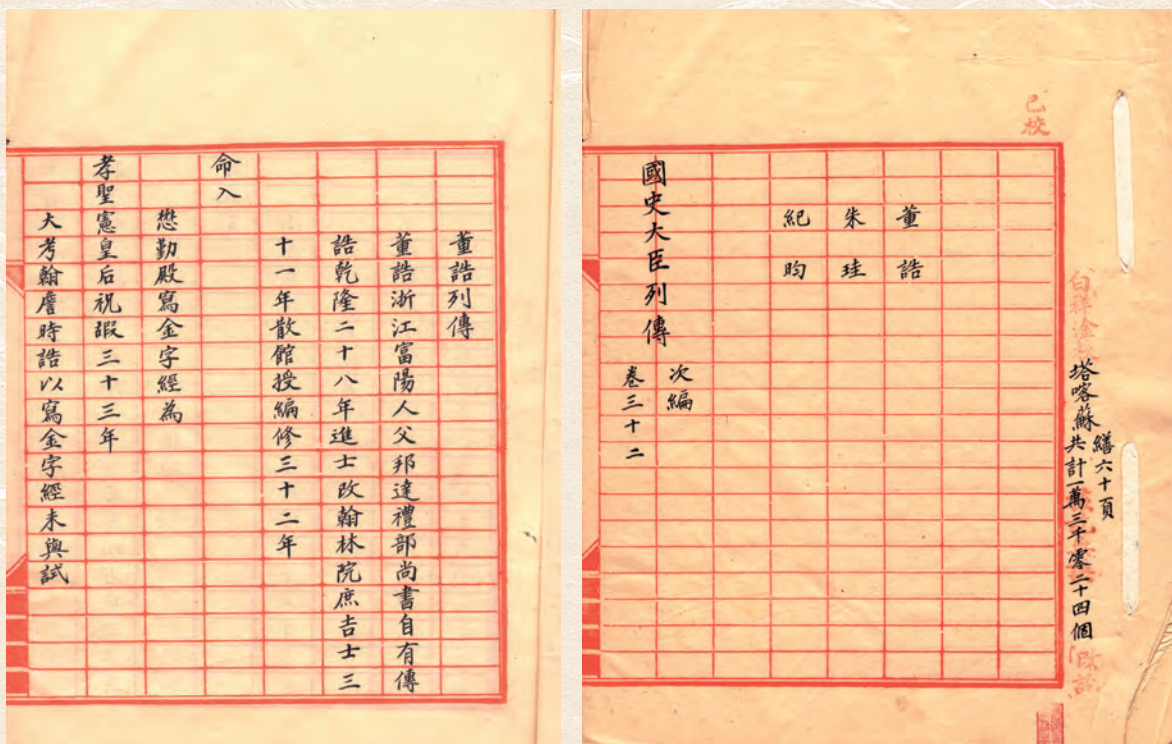 繕六十頁
塔喀蘇
共計一萬三千零二十四個
已校
董誥
朱珪
紀昀
次編
國史大臣列傳
卷三十二
董誥列傳
董誥浙江富陽人父邦達禮部尚書自有傳
誥乾隆二十八年進士改翰林院庶吉士三
十一年散館授編修三十二年
命入
懋勤殿寫金字經為
孝聖憲皇后祝嘏三十三年
大考翰詹時誥以寫金字經未與試